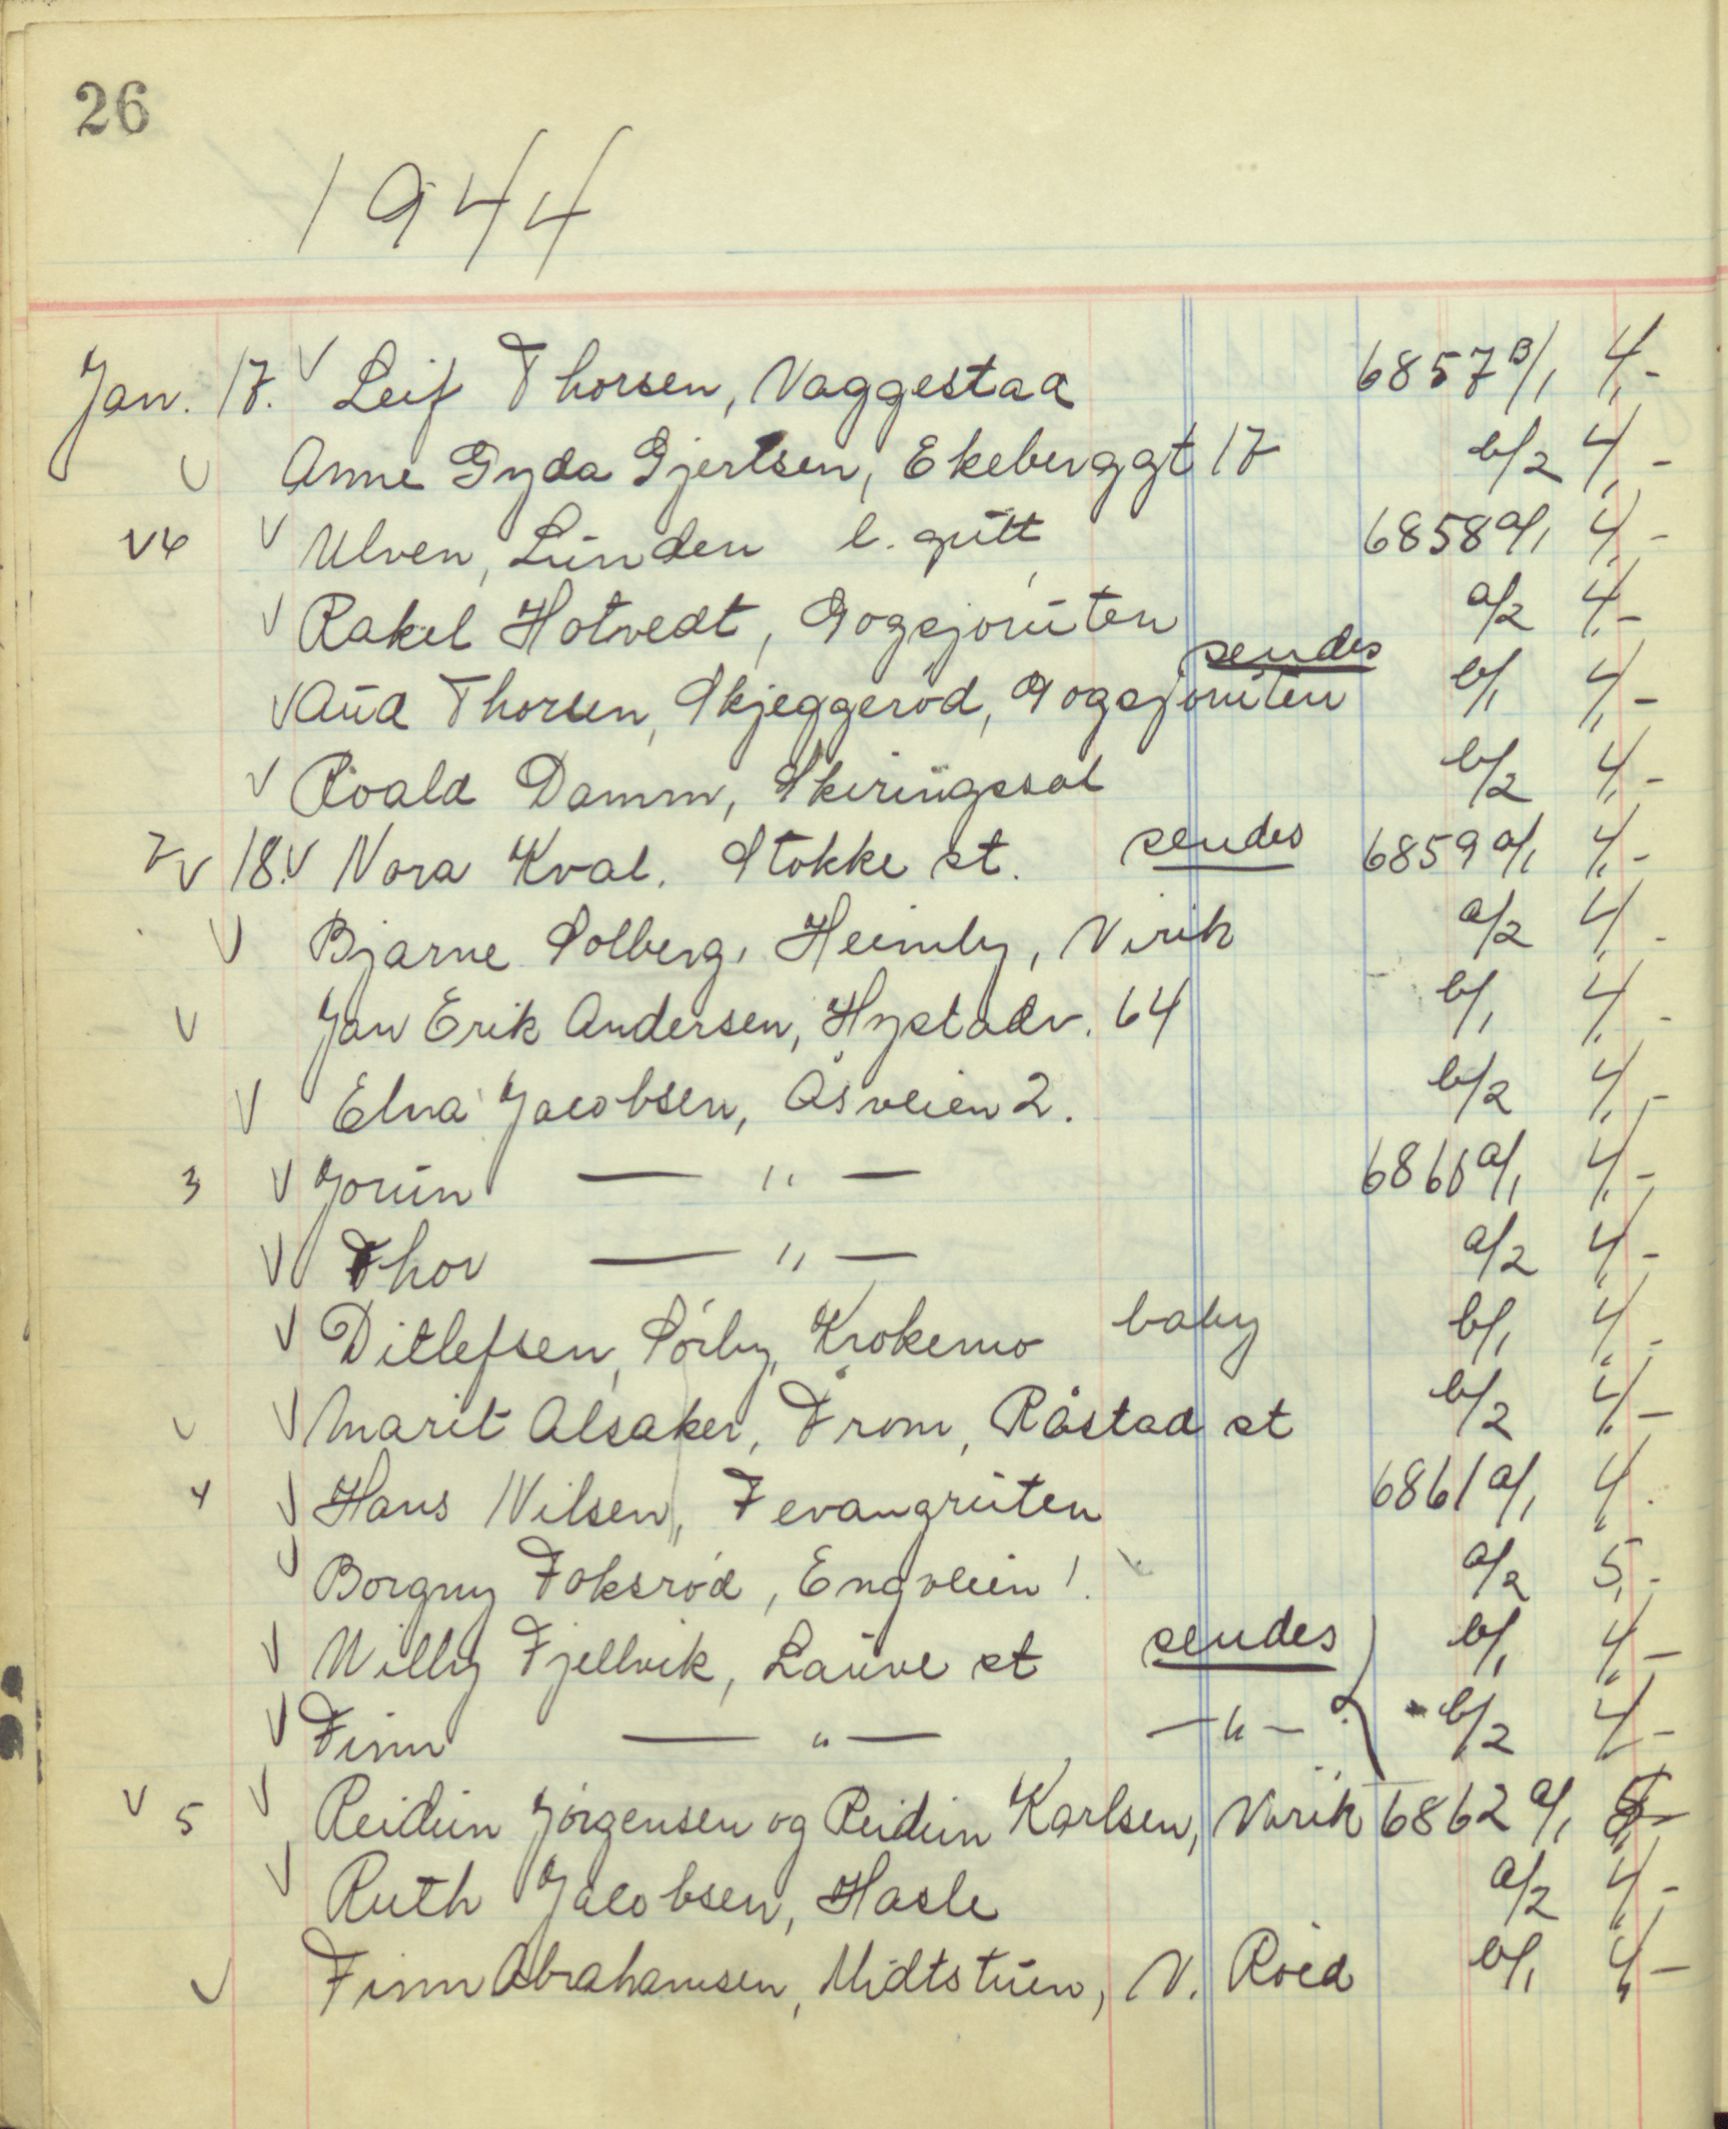 26
1944
Jan. 17. V Leif Thorsen, Vaggestad 6857 B/1 4,-
V Anne Gyda Gjertsen, Ekeberggt 17 b/2 4,-
V V Ulven, Lunden l. gutt 6858 a/1 4,-
V Rakel Hotvedt, Gogsjoruten a/2 4,-
sendes
V Aud Thorsen, Skjeggerød, Gogsjoruten b/1 4,-
V Roald Damm, Skiringssal b/2 4,-
2 V 18. V Nora Kval. Stokke st. sendes 6859 a/1 4,-
V Bjarne Solberg, Heimly, Virik a/2 4,-
V Jan Erik Andersen, Hystadv. 64 b/1 4,-
V Elna Jacobsen, Åsveien 2. b/2 4,-
3 V Jorun — " — 6860 a/1 4,-
V Thor — " — a/2 4,-
V Ditlefsen, Sørby, Krokemo baby b/1 4,-
V V Marit Alsaker, From, Råstad st b/2 4,-
4 V Hans Nilsen, Fevangruten 6861 a/1 4,-
V Borgny Foksrød, Engveien 1. a/2 5,-
V Willy Fjellvik, Lauve st sendes b/1 4,-
V Finn — " — — " — b/2 4,-
V 5 V Reidun Jørgensen og Reidun Karlsen, Virik 6862 a/1
V Ruth Jacobsen, Hasle a/2 4,-
V Finn Abrahamsen, Midtstuen, N. Roed b/1 4,-